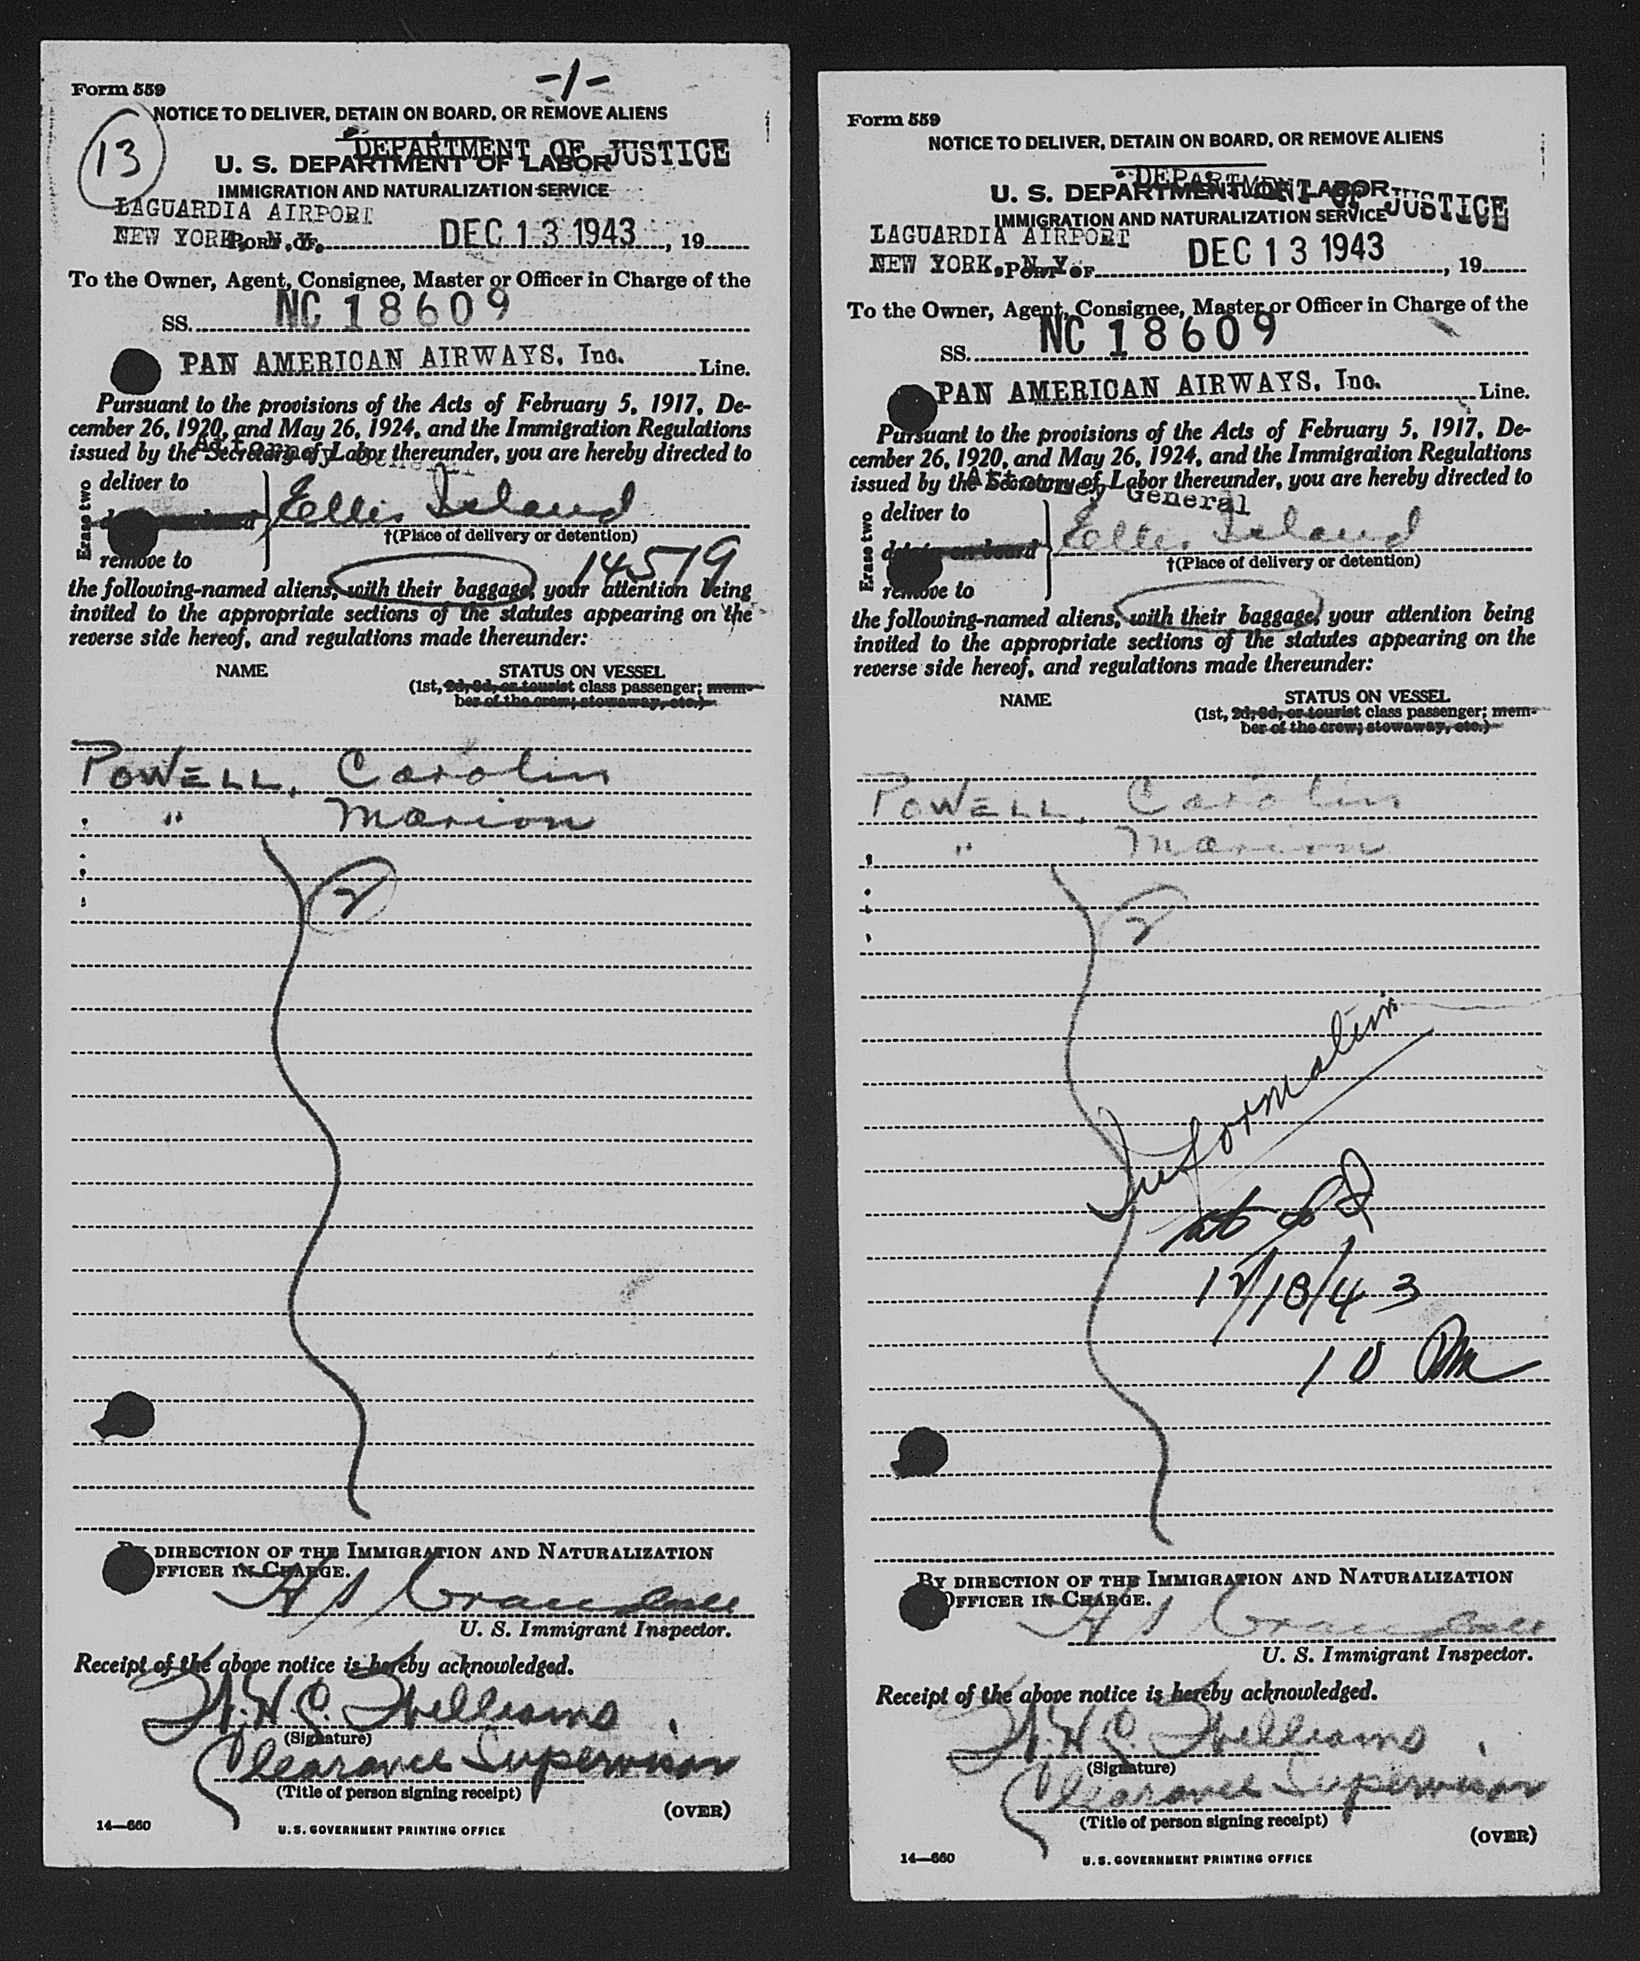 -1-
Form 559
NOTICE TO DELIVER, DETAIN ON BOARD, OR REMOVE ALIENS
13
DEPARTMENT OF JUSTICE
U. S. DEPARTMENT OF LABOR
IMMIGRATION AND NATURALIZATION SERVICE
LAGUARDIA AIRPORT
NEW YORK, N. Y. PORT OF DEC 13 1943, 19
To the Owner, Agent, Consignee, Master or Officer in Charge of the
SS. NC 18609
PAN AMERICAN AIRWAYS, Inc. Line.
Pursuant to the provisions of the Acts of February 5, 1917, De-
cember 26, 1920, and May 26, 1924, and the Immigration Regulations
Attorney General
issued by the Secretary of Labor thereunder, you are hereby directed to
Erase two
deliver to
Ellis Island
†(Place of delivery or detention)
remove to
14519
the following-named aliens, with their baggage, your attention being
invited to the appropriate sections of the statutes appearing on the
reverse side hereof, and regulations made thereunder:
NAME STATUS ON VESSEL
(1st, 2d, 3d, or tourist class passenger; mem-
ber of the crew; stowaway, etc.)
POWELL, Carolin
" Marion
2
BY DIRECTION OF THE IMMIGRATION AND NATURALIZATION
OFFICER IN CHARGE.
U. S. Immigrant Inspector.
Receipt of the above notice is hereby acknowledged.
W.H.C. Williams
(Signature)
Clearance Supervisor
(Title of person signing receipt)
(OVER)
14—660 U. S. GOVERNMENT PRINTING OFFICE
Form 559
NOTICE TO DELIVER, DETAIN ON BOARD, OR REMOVE ALIENS
DEPARTMENT OF JUSTICE
U. S. DEPARTMENT OF LABOR
IMMIGRATION AND NATURALIZATION SERVICE
LAGUARDIA AIRPORT
NEW YORK, N. Y. PORT OF DEC 13 1943, 19
To the Owner, Agent, Consignee, Master or Officer in Charge of the
SS. NC 18609
PAN AMERICAN AIRWAYS, Inc. Line.
Pursuant to the provisions of the Acts of February 5, 1917, De-
cember 26, 1920, and May 26, 1924, and the Immigration Regulations
issued by the Secretary of Labor thereunder, you are hereby directed to
Attorney General
Erase two
deliver to
detain on board
Ellis Island
†(Place of delivery or detention)
remove to
the following-named aliens, with their baggage, your attention being
invited to the appropriate sections of the statutes appearing on the
reverse side hereof, and regulations made thereunder:
NAME STATUS ON VESSEL
(1st, 2d, 3d, or tourist class passenger; mem-
ber of the crew; stowaway, etc.)
POWELL, Carolin
" Marion
2
Information
12/18/43
10 PM
BY DIRECTION OF THE IMMIGRATION AND NATURALIZATION
OFFICER IN CHARGE.
U. S. Immigrant Inspector.
Receipt of the above notice is hereby acknowledged.
W.H.C. Williams
(Signature)
Clearance Supervisor
(Title of person signing receipt)
(OVER)
14—660 U. S. GOVERNMENT PRINTING OFFICE